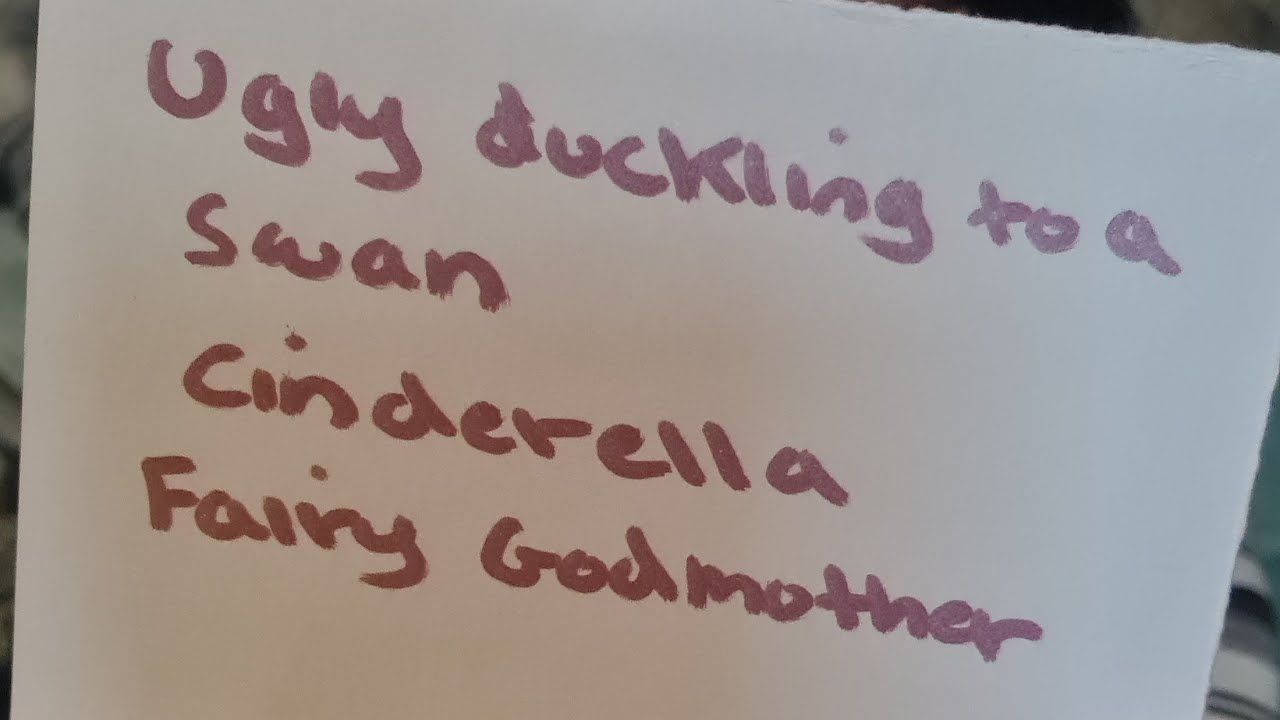 Ugly duckling to a
Swan
Cinderella
Fairy Godmother